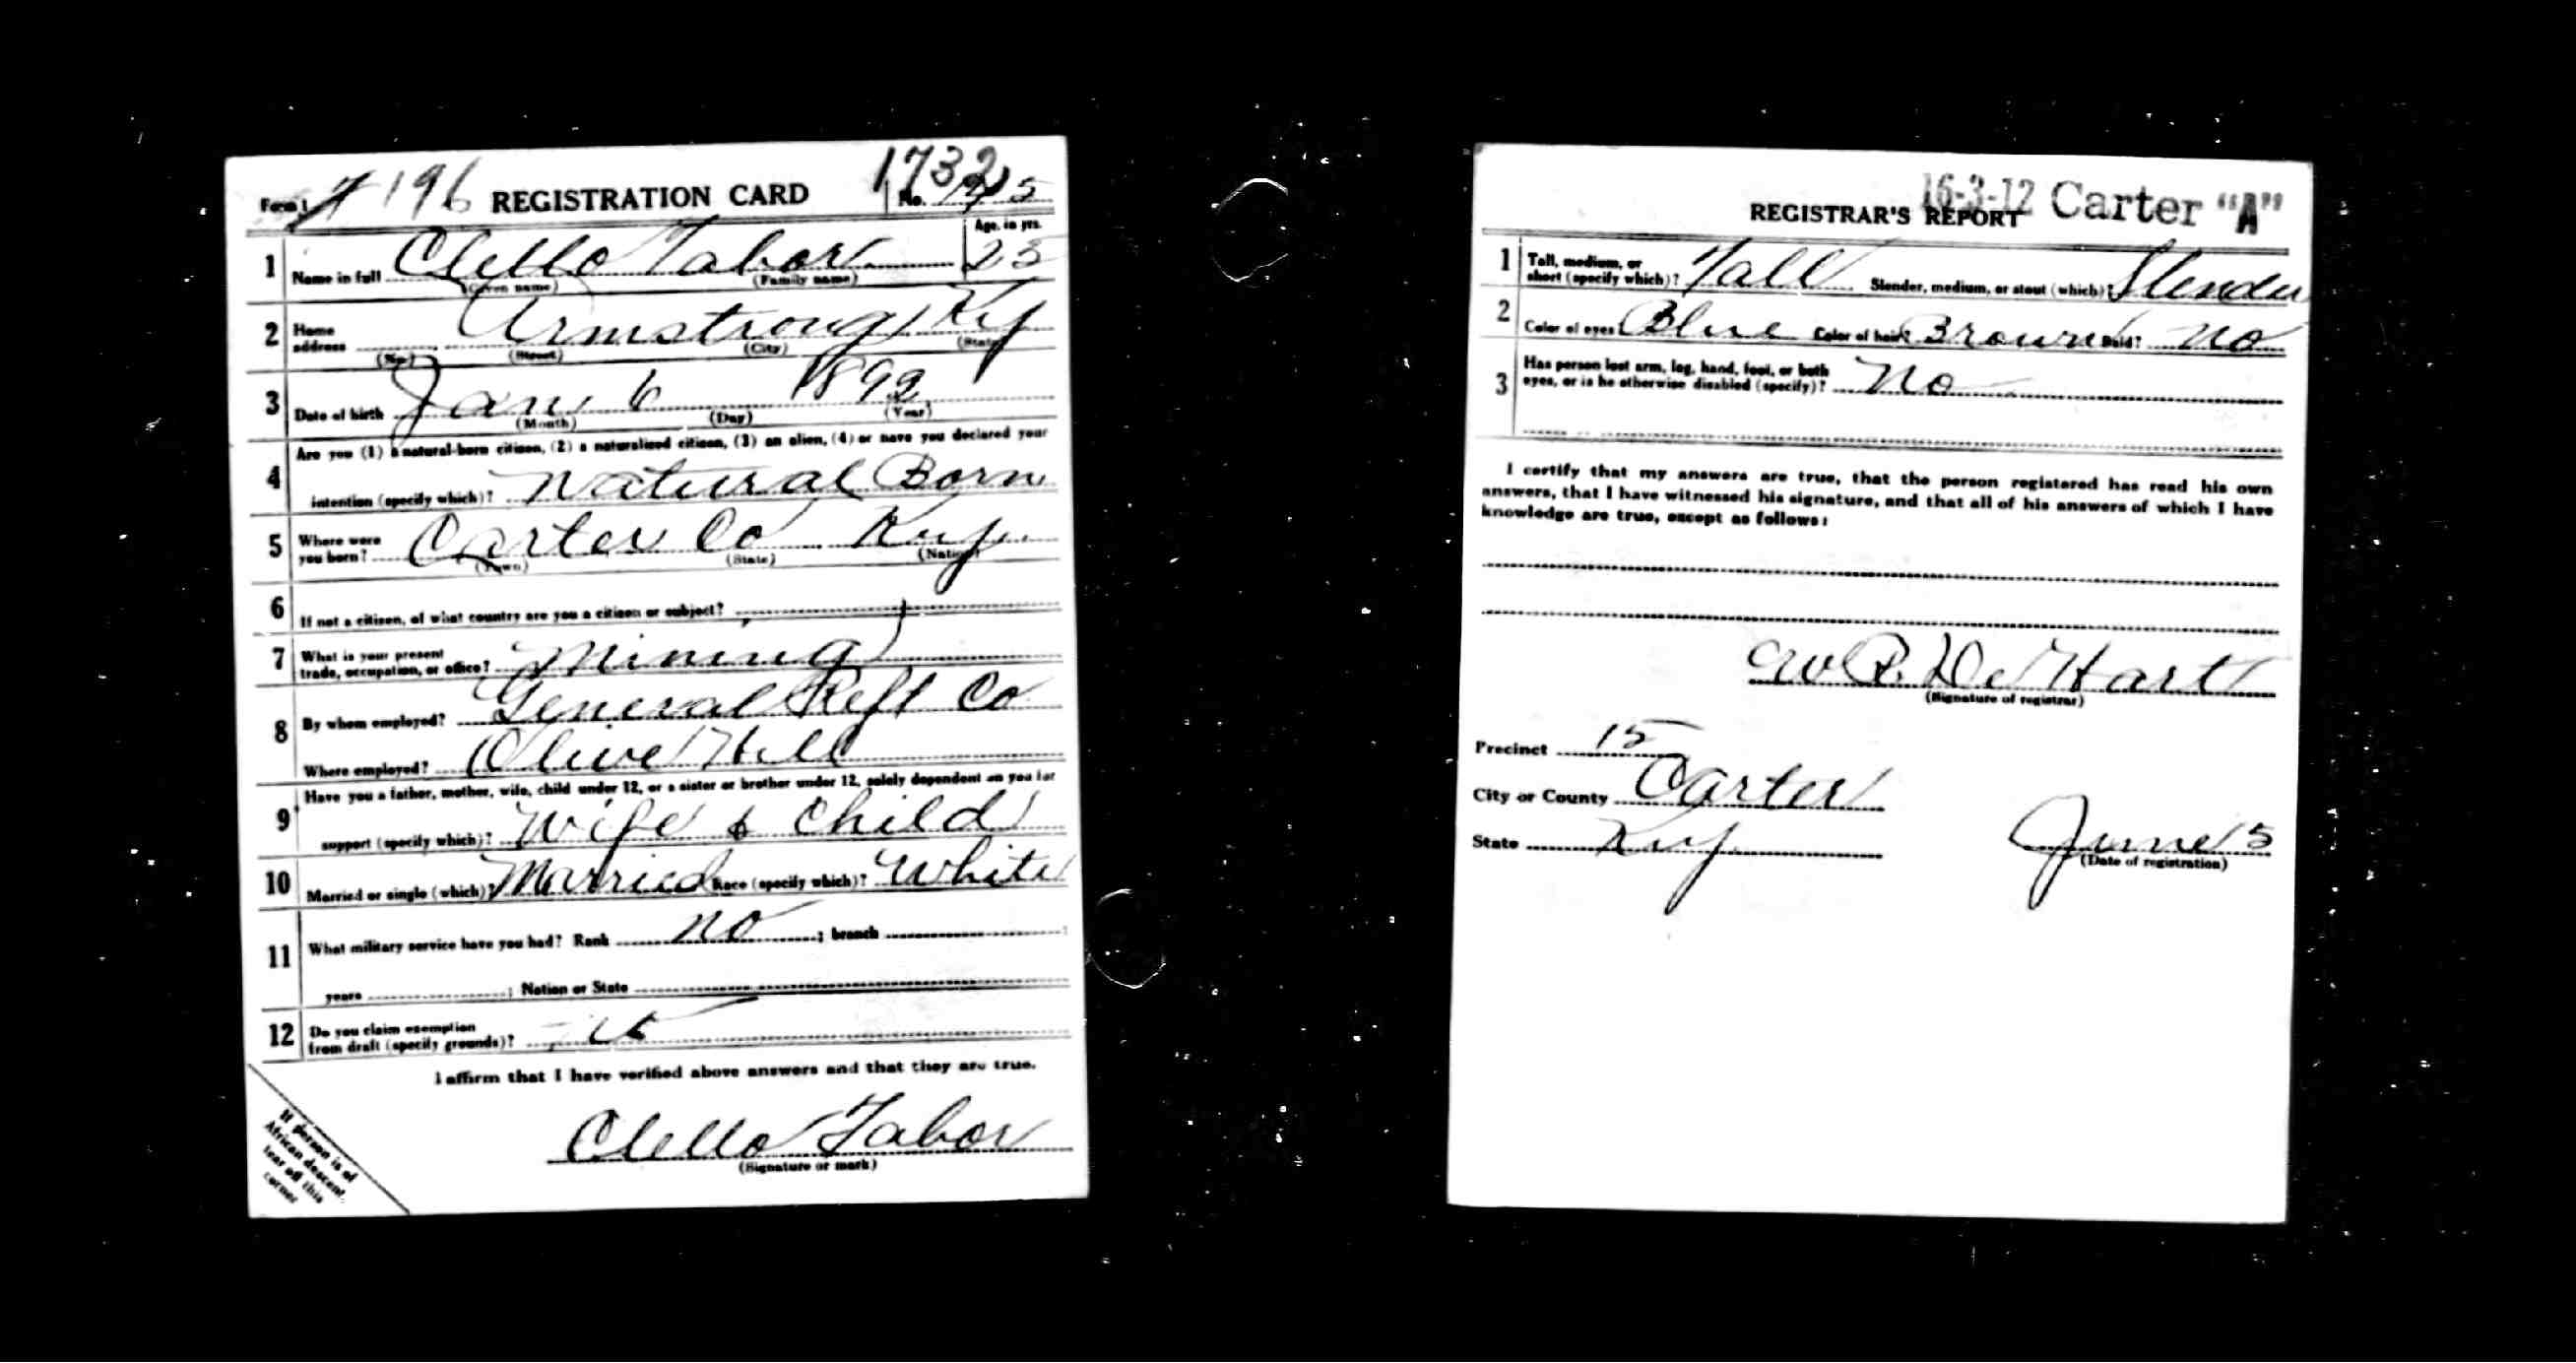 Form 1 196 REGISTRATION CARD 1732 No.
Age, in yrs.
1 Name in full Clello Tabor 23
(Given name) (Family name)
2 Home address Armstrong Ky
(No.) (Street) (City) (State)
3 Date of birth Jan 6 1892
(Month) (Day) (Year)
4 Are you (1) a natural-born citizen, (2) a naturalized citizen, (3) an alien, (4) or have you declared your
intention (specify which)? Natural Born
5 Where were you born? Carter Co Ky
(Town) (State) (Nation)
6 If not a citizen, of what country are you a citizen or subject?
7 What is your present trade, occupation, or office? Mining
8 By whom employed? General Reft Co
Where employed? Olive Hill
9 Have you a father, mother, wife, child under 12, or a sister or brother under 12, solely dependent on you for
support (specify which)? Wife & Child
10 Married or single (which)? Married Race (specify which)? White
11 What military service have you had? Rank no ; branch ;
years ; Nation or State
12 Do you claim exemption from draft (specify grounds)?
I affirm that I have verified above answers and that they are true.
Clello Tabor
(Signature or mark)
If person is of
African descent,
tear off this
corner
16-3-12 Carter "A"
REGISTRAR'S REPORT
1 Tall, medium, or short (specify which)? Tall Slender, medium, or stout (which)? Slender
2 Color of eyes Blue Color of hair? Brown Bald? no
3 Has person lost arm, leg, hand, foot, or both
eyes, or is he otherwise disabled (specify)? No
I certify that my answers are true, that the person registered has read his own
answers, that I have witnessed his signature, and that all of his answers of which I have
knowledge are true, except as follows:
W R De Hart
(Signature of registrar)
Precinct 15
City or County Carter
State Ky June 5
(Date of registration)